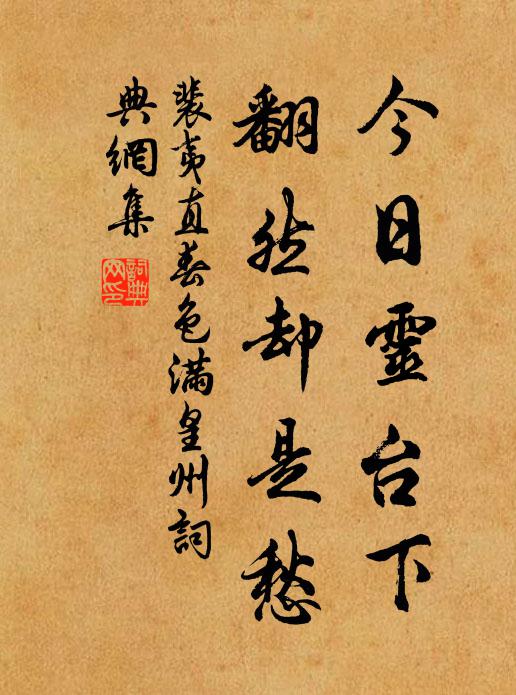 今日靈台下
翻然却是愁
裴夷直春色滿皇州詞
典網集
詞典
网印